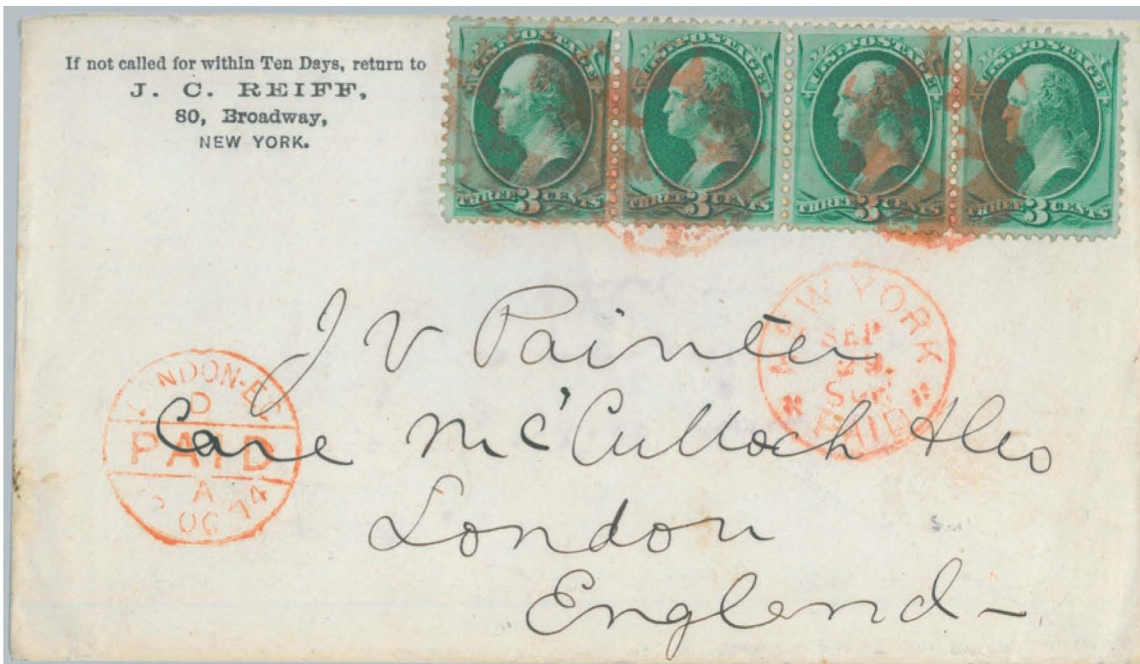 If not called for within Ten Days, return to
J. C. REIFF,
80, Broadway,
NEW YORK.
U.S. POSTAGE
THREE 3 CENTS
U.S. POSTAGE
THREE 3 CENTS
U.S. POSTAGE
THREE 3 CENTS
U.S. POSTAGE
THREE 3 CENTS
NEW YORK
SEP
29
PAID
J V Painter
Care McCulloch &Co
London
England
LONDON-E.C
D
PAID
A
OC 74